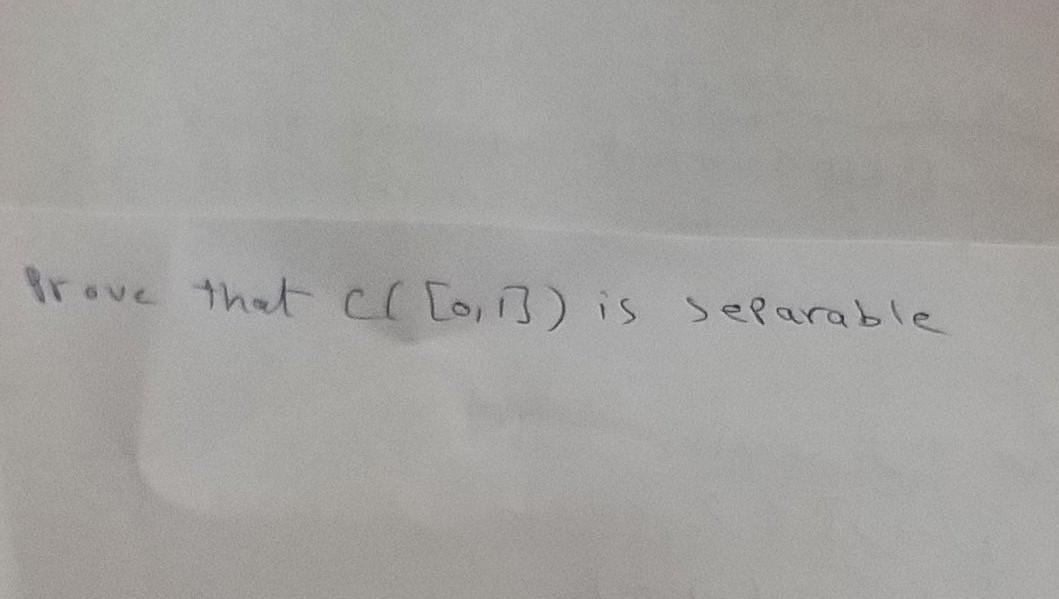 Prove that C([0,1]) is separable